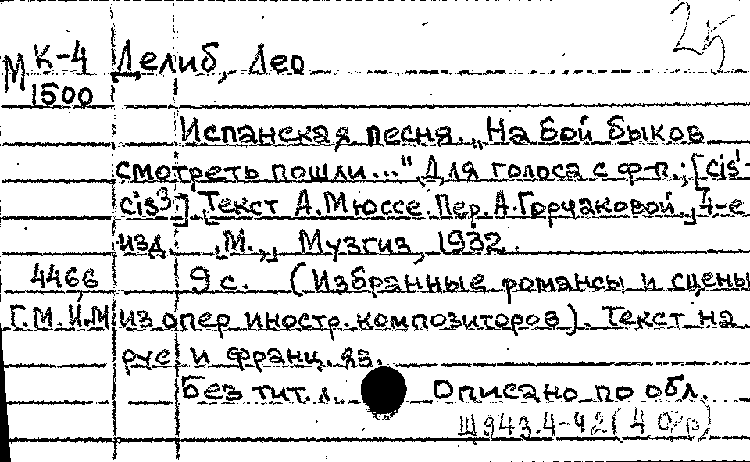 25
М К-4 Делиб, Лео
1500
Испанская песня. „На бой быков
смотреть пошли...“ Для голоса с ф-п.; [cis¹-
cis³.] Текст А. Мюссе. Пер. А. Горчаковой. 4-е
изд. М., Музгиз, 1932.
4466 9 с. (Избранные романсы и сцены
Г.М.И.М из опер иностр. композиторов). Текст на
рус. и франц. яз.
Без тит. л. Описано по обл.
Щ943.4-42(4 Фр)